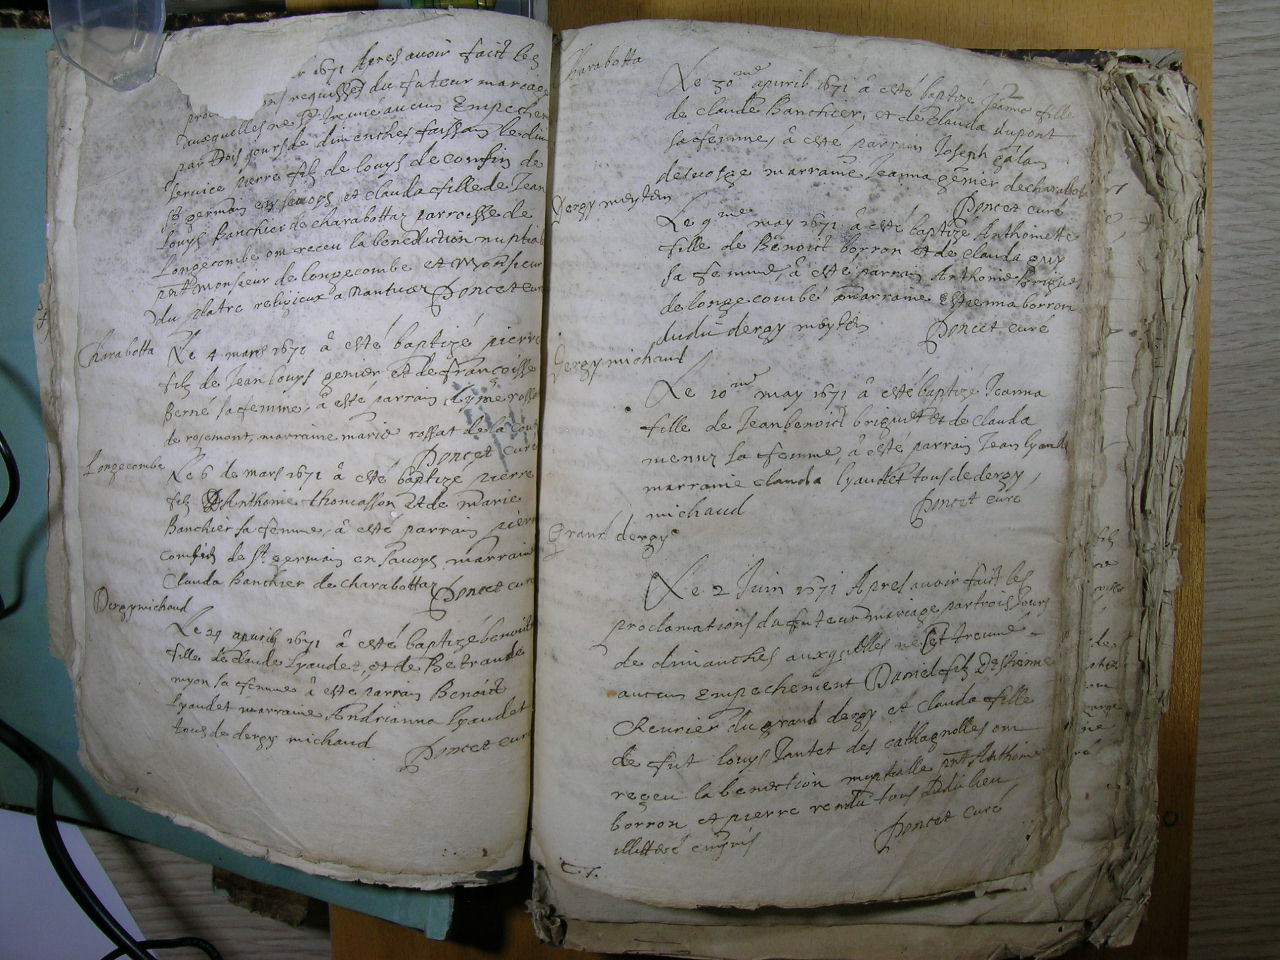 1671 Apres avoir fait les
requisses du futeur mariage
ausquelles ne st treuvé aucun Empechem
par trois jours de dimenches faissan le divin
service pierre filz de louys de confin de
st germain en savoye et clauda fille de Jean
louys banchier de charabottaz parroisse de
Longecombe on receu la benediction nuptial
pnt monsieur de longecombe et monsieur
du platre religieux a Nantuaz Poncet curé
Charabotta
Le 4 mars 1671 â esté baptizé pierre
filz de Jean louys genier et de francoisse
berné sa femme, â esté parrain
de rosemont, marraine marie rossat de la
Poncet curé
Longecombe
Le 6 de mars 1671 â esté baptize pierre
filz d'Anthoine thomasson et de marie
Banchier sa femme, â esté parrain pierre
confin de st germain en savoys marraine
Clauda banchier de charabottaz Poncet curé
Dergy michaud
Le 29 apvril 1671 â esté baptizé benoite
fille de claude lyaudet, et de Betrande
myon sa femme â esté parrain Benoict
Lyaudet marraine Andrianne lyaudet
tous de dergy michaud
Poncet curé
Charabotta
2
Le 30me apvril 1671 â esté baptizé Jeanne fille
de claude banchier, et de clauda dupont
sa femme, â esté parrain Joseph galan
marraine Jeanna genier de charabot
Poncet curé
Dergy meyten
Le 9me may 1671 â esté baptizé Anthoinette
fille de Benoict borron et de clauda guy
sa femme, â esté parrain Anthoine
de longecombe marraine Estienna borron
dudit dergy meyten Poncet curé
Dergy michaud
Le 10me may 1671 â esté baptizé Jeanna
fille de Jean benoict briguet et de clauda
sa femme, â esté parrain Jean lyaudet
marraine clauda lyaudet tous de dergy
michaud
Poncet curé
Grand dergy
Le 2 Juin 1671 Apres avoir fait les
proclamations du futeur mariage par trois Jours
de dimanches ausquelles ne st treuvé
aucun Empechement Daniel filz d'Estienne
Crevrier du grand dergy et clauda fille
de fut louys Jantet des cathagnolles on
reçeu la benediction nuptialle pnt Anthoine
borron et pierre tous dudit lieu
illitteré enquis
Poncet curé